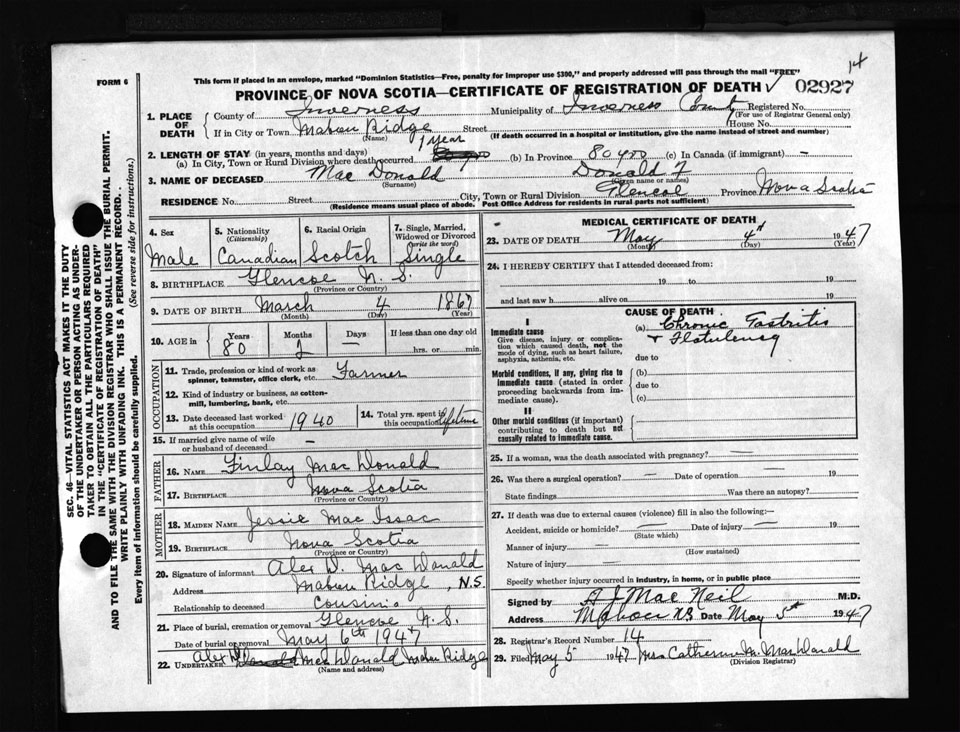 14
FORM 6
This form if placed in an envelope, marked "Dominion Statistics—Free, penalty for improper use $300," and properly addressed will pass through the mail "FREE"
PROVINCE OF NOVA SCOTIA—CERTIFICATE OF REGISTRATION OF DEATH 02927
1. PLACE OF DEATH County of Inverness Municipality of Inverness County Registered No.
(For use of Registrar General only)
If in City or Town Mabou Ridge Street House No.
(Name) (If death occurred in a hospital or institution, give the name instead of street and number)
2. LENGTH OF STAY (in years, months and days)
(a) In City, Town or Rural Division where death occurred 1 year (b) In Province 80 yrs (c) In Canada (if immigrant) —
3. NAME OF DECEASED Mac Donald Donald F
(Surname) (Given name or names)
RESIDENCE No. Street City, Town or Rural Division Glencoe Province Nova Scotia
(Residence means usual place of abode. Post Office Address for residents in rural parts not sufficient)
4. Sex Male
5. Nationality (Citizenship) Canadian
6. Racial Origin Scotch
7. Single, Married, Widowed or Divorced (write the word) Single
8. BIRTHPLACE Glencoe N. S.
(Province or Country)
9. DATE OF BIRTH March 4 1867
(Month) (Day) (Year)
10. AGE in Years 80 Months 2 Days — If less than one day old
hrs. or min.
OCCUPATION
11. Trade, profession or kind of work as spinner, teamster, office clerk, etc. Farmer
12. Kind of industry or business, as cotton-mill, lumbering, bank, etc.
13. Date deceased last worked at this occupation 1940
14. Total yrs. spent in this occupation lifetime
15. If married give name of wife or husband of deceased —
FATHER
16. NAME Finlay Mac Donald
17. BIRTHPLACE Nova Scotia
(Province or Country)
MOTHER
18. MAIDEN NAME Jessie Mac Issac
19. BIRTHPLACE Nova Scotia
(Province or Country)
20. Signature of informant Alex D. Mac Donald
Address Mabou Ridge, N.S.
Relationship to deceased Cousin
21. Place of burial, cremation or removal Glencoe N. S.
Date of burial or removal May 6th 1947
22. UNDERTAKER Alex D. Mac Donald Mabou Ridge
(Name and address)
MEDICAL CERTIFICATE OF DEATH
23. DATE OF DEATH May 4th 1947
(Month) (Day) (Year)
24. I HEREBY CERTIFY that I attended deceased from:
19 to 19
and last saw h alive on 19
CAUSE OF DEATH
I
Immediate cause
Give disease, injury or complication which caused death, not the mode of dying, such as heart failure, asphyxia, asthenia, etc.
(a) Chronic Gastritis
+ Flatulency
due to
Morbid conditions, if any, giving rise to immediate cause (stated in order proceeding backwards from immediate cause).
(b)
due to
(c)
II
Other morbid conditions (if important) contributing to death but not causally related to immediate cause.
25. If a woman, was the death associated with pregnancy? —
26. Was there a surgical operation? — Date of operation — 19
State findings Was there an autopsy?
27. If death was due to external causes (violence) fill in also the following:—
Accident, suicide or homicide? — Date of injury — 19
(State which)
Manner of injury —
(How sustained)
Nature of injury —
Specify whether injury occurred in industry, in home, or in public place
Signed by A J Mac Neil M.D.
Address Mabou N.S Date May 5th 1947
28. Registrar's Record Number 14
29. Filed May 5 1947 Mrs Catherine M. MacDonald
(Division Registrar)
SEC. 46—VITAL STATISTICS ACT MAKES IT THE DUTY
OF THE UNDERTAKER OR PERSON ACTING AS UNDERTAKER TO OBTAIN ALL THE PARTICULARS REQUIRED
IN THE "CERTIFICATE OF REGISTRATION OF DEATH"
AND TO FILE THE SAME WITH THE DIVISION REGISTRAR WHO SHALL ISSUE THE BURIAL PERMIT.
WRITE PLAINLY WITH UNFADING INK. THIS IS A PERMANENT RECORD.
Every item of information should be carefully supplied. (See reverse side for instructions.)